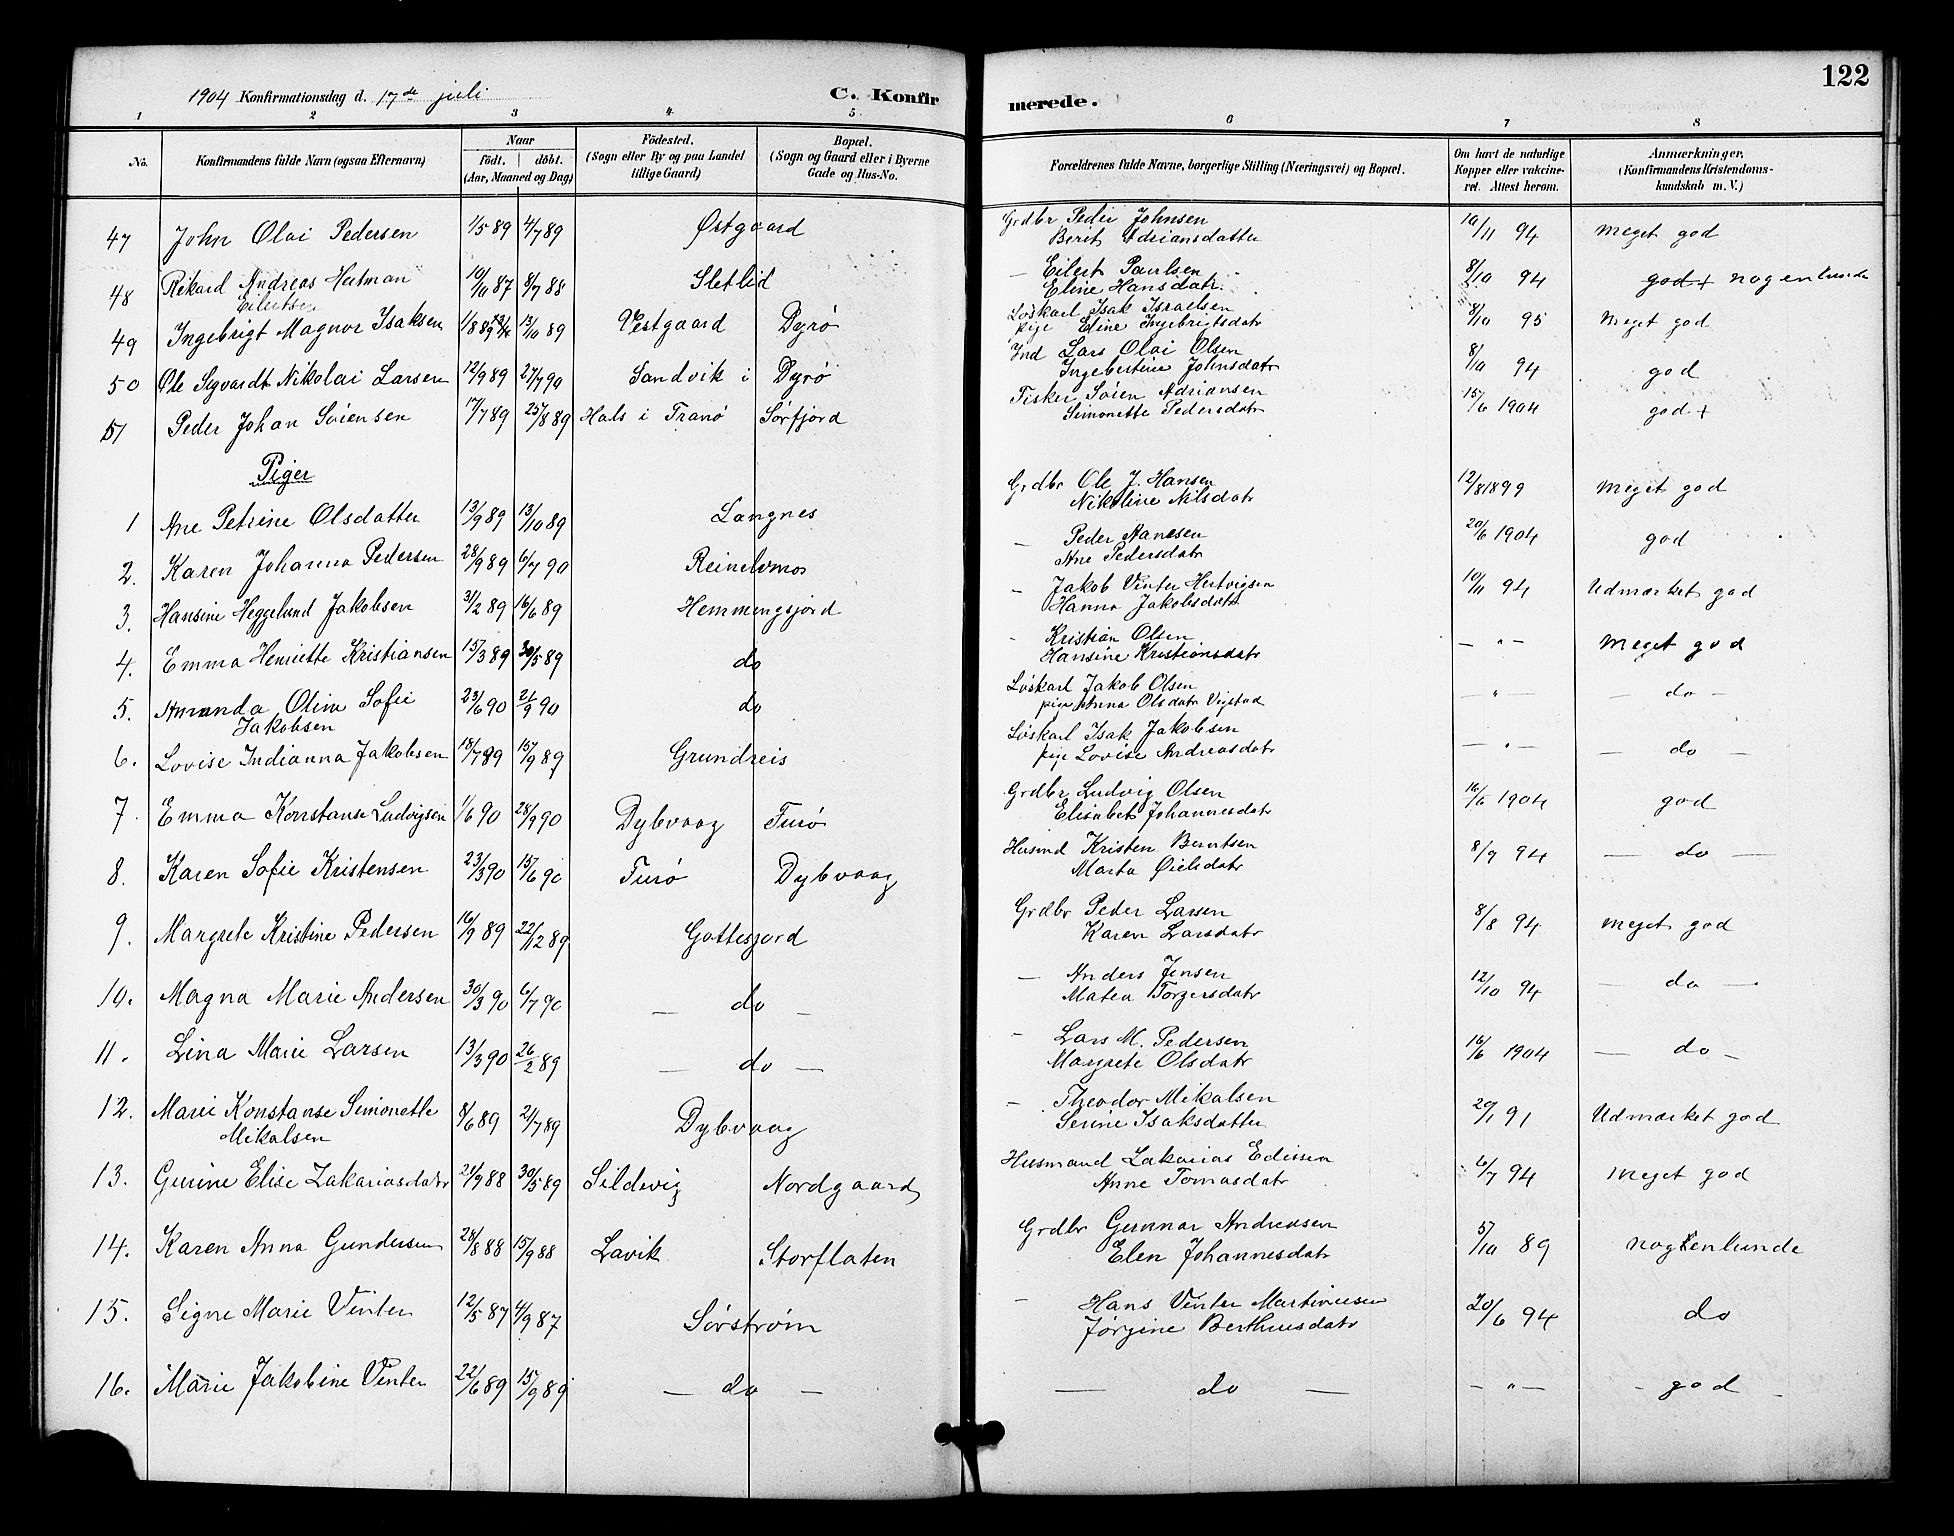 1904 Konfirmationsdag d. 17de juli
C. Konfirmerede.
122
1 2 3 4 5 6 7 8
No. | Konfirmandens fulde Navn (ogsaa Efternavn) | Naar født. | døbt. (Aar, Maaned og Dag) | Födested. (Sogn eller By og paa Landet tillige Gaard) | Bopæl. (Sogn og Gaard eller i Byerne Gade og Hus-No. | Forældrenes fulde Navne, borgerlige Stilling (Næringsvei) og Bopæl. | Om havt de naturlige Kopper eller vakcineret. Attest herom. | Anmærkninger, (Konfirmandens Kristendomskundskab m. V.)
47 John Olai Pedersen 1/5 89 4/7 89 Østgaard Grdbr Peder Johnsen 10/11 94 Meget god
Berit Adriansdatter
48 Rikard Andreas Hatman 10/10 87 8/7 88 Sletlid — Eilert Paulsen 8/10 94 god + nogenlunde
Eilertsen Eline Hansdatr.
49 Ingebrigt Magnor Isaksen 1/8 89 13/10 89 Vestgaard Dyrø Løskarl Isak Israelsen 8/10 95 Meget god
pige Eline Ingebrigtsdatr
50 Ole Sigvardt Nikolai Larsen 12/9 89 27/7 90 Sandvik i Dyrø Ind Lars Olai Olsen 8/10 94 god
Ingebertine Johnsdatr
51 Peder Johan Søiensen 17/7 89 25/8 89 Hals i Tranø Sørfjord Fisker Søien Adriansen 15/6 1904 god +
Simonette Pedersdatr
Piger
1 Ane Petrine Olsdatter 13/9 89 13/10 89 Langnes Grdbr Ole J. Hansen 12/8 1899 Meget god
Nikoline Nilsdatr
2. Karen Johanna Pedersen 28/9 89 6/7 90 Reinelvmos — Peder Hansen 20/6 1904 god
Ane Pedersdatr
3. Hansine Heggelund Jakobsen 3/2 89 16/6 89 Hemmingsjord - Jakob Vinter Hertvigsen 10/11 94 Udmærket god
Hanna Jakobsdatr
4. Emma Henriette Kristiansen 15/3 89 30/5 89 do - Kristian Olsen — " — Meget god
Hansine Kristiansdatr
5. Amanda Olina Sofie 23/6 90 21/9 90 do Løskarl Jakob Olsen — " — do —
Jakobsen pige Anna Olsdatr Vigstad
6. Lovise Indianna Jakobsen 18/7 89 15/9 89 Grundreis Løskarl Isak Jakobsen — " — — do —
pige Lovise Andreasdatr
7. Emma Konstanse Ludvigsen 1/6 90 28/9 90 Dybvaag Furø Grdbr Ludvig Olsen 16/6 1904 god
Elisabet Johannesdatr
8. Karen Sofie Kristensen 23/3 90 15/6 90 Furø Dybvaag Husmd Kristen Berntsen 8/9 94 — do —
Marta Øielsdatr
9. Margrete Kristine Pedersen 16/9 89 22/12 89 Gottesjord Grdbr Peder Larsen 8/8 94 Meget god
Karen Larsdatr
10. Magna Marie Andersen 30/3 90 6/7 90 — do — — Anders Jensen 12/10 94 — do —
Matea Torgersdatr
11. Lina Marie Larsen 13/3 90 26/2 89 — do — - Lars M. Pedersen 16/6 1904 — do —
Margrete Olsdatr
12. Marie Konstanse Simonette 8/6 89 21/7 89 Dybvaag - Theodor Mikalsen 20/1 91 Udmærket god
Mikalsen Serine Isaksdatter
13. Gurine Elise Zakariasdatr 21/9 88 30/5 89 Sildvig Nordgaard Husmand Zakarias Edissen 6/7 94 Meget god
Anne Tomasdatr
14. Karen Anna Gundersen 28/8 88 15/9 88 Lavik Storflaten Grdbr Gunnar Andreasen 5/10 89 nogenlunde
Elen Johannesdatr
15. Signe Marie Vinter 12/5 87 4/9 87 Sørstrøm - Hans Vinter Martinusen 20/6 94 do
Jørgine Berthinesdatr
16. Marie Jakobine Vinter 22/6 89 15/9 89 — do — — do — — " — - god -